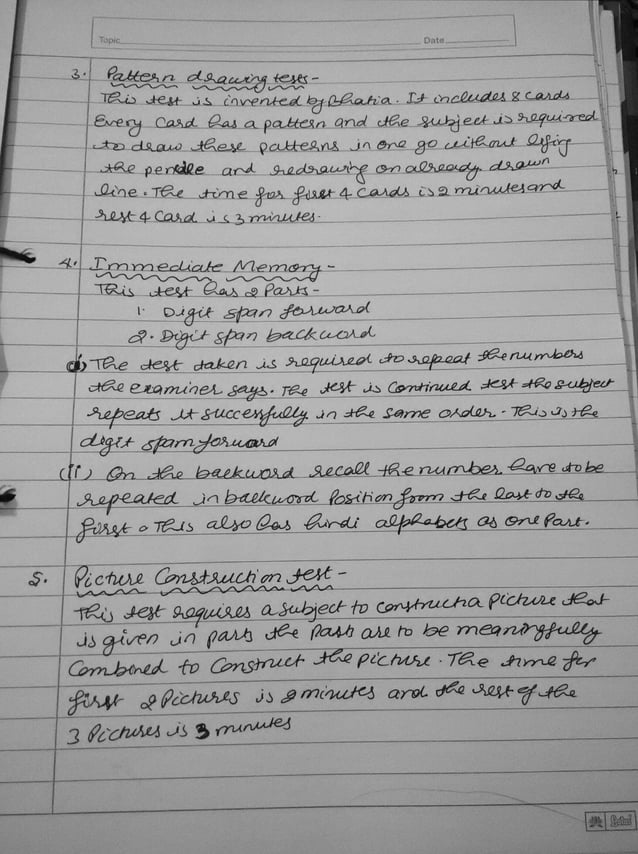 Topic Date
3. Pattern drawing tests -
This test is invented by Bhatia. It includes 8 cards
Every card has a pattern and the subject is required
to draw these patterns in one go without lifing
the and redrawing on already drawn
line. The time for first 4 cards is 2 minutes and
rest 4 card is 3 minutes.
4. Immediate Memory -
This test has 2 Parts -
1. Digit span forward
2. Digit span backword
The test taken is required to repeat the numbers
the examiner says. The test is continued test the subject
repeats it successfully in the same order. This is the
digit spam forward
(ii) On the backword recall the number have to be
repeated in backword Position from the last to the
first. This also has hindi alphabets as one Part.
5. Picture Construction test -
This test requires a subject to a picture that
is given in parts the parts are to be meaningfully
Combined to Construct the picture. The time for
first 2 Pictures is 2 minutes and the rest of the
3 Pictures is 3 minutes